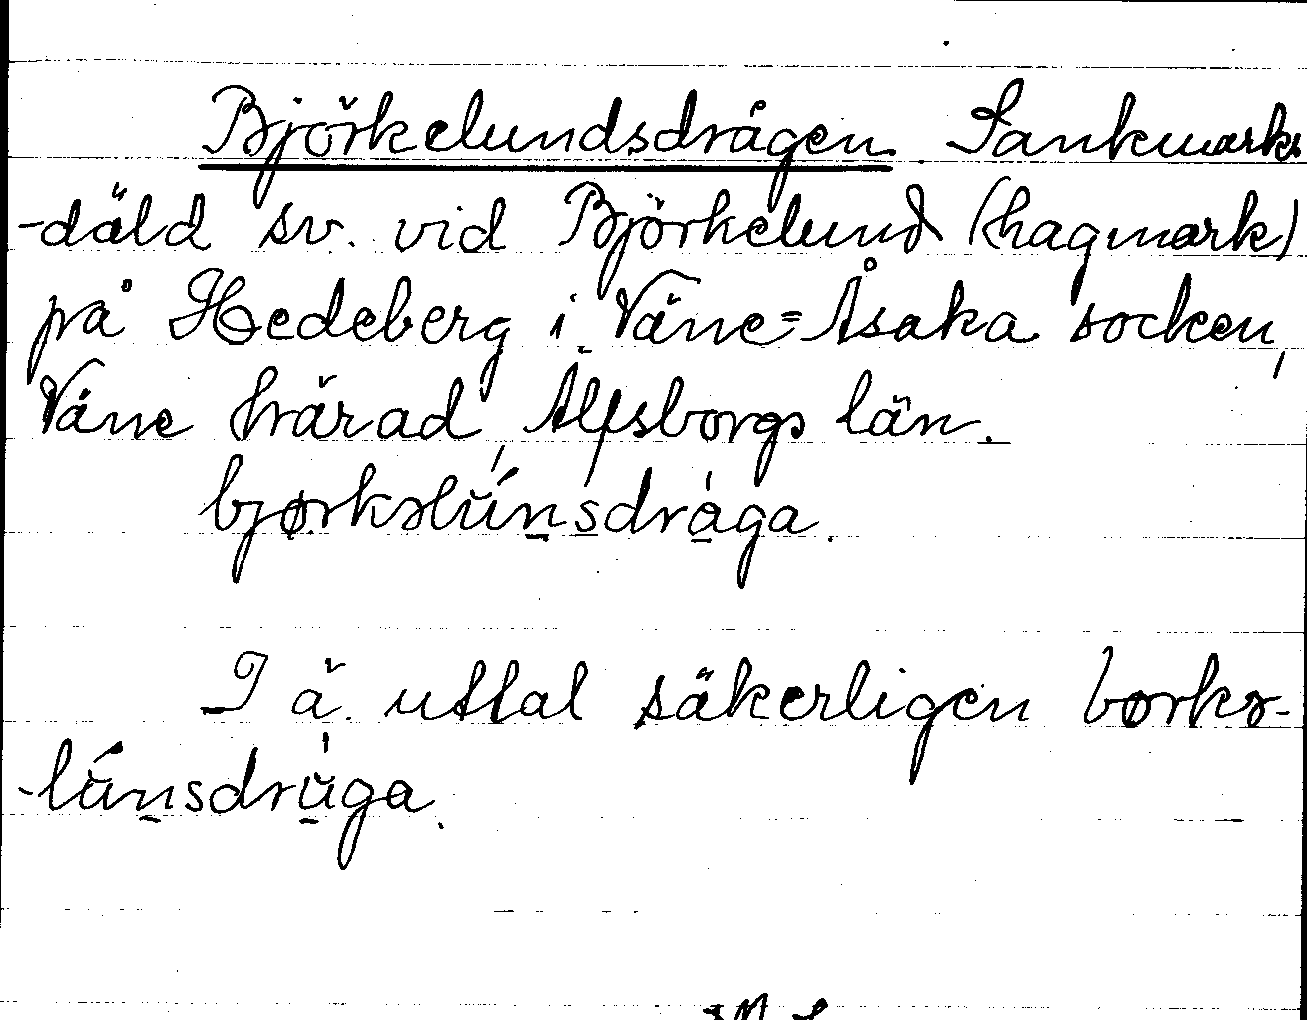 Björkelundsdrågen. Sankmarks
-däld sv. vid Björkelund (hagmark)
på Hedeberg i Väne=Åsaka socken,
Väne härad, Älfsborgs län.
bjørkəlúnsdràga.
I ä. uttal säkerligen børkə-
-lúnsdrùga.